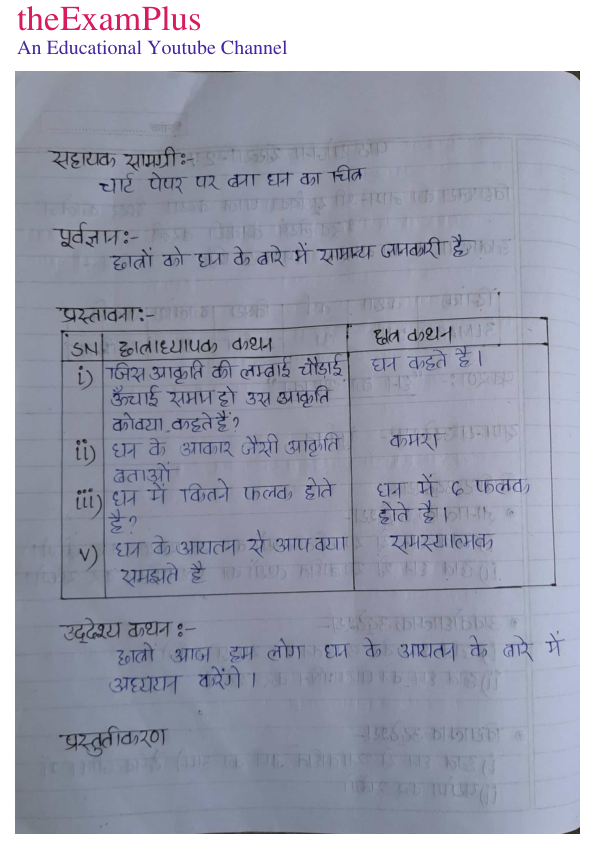 theExamPlus
An Educational Youtube Channel
सहायक सामग्री:-
चार्ट पेपर पर बना घन का चित्र
पूर्वज्ञान:-
छात्रों को घन के बारे में सामान्य जानकारी है
प्रस्तावना:-
SN छात्राध्यापक कथन छात्र कथन
i) जिस आकृति की लम्बाई चौड़ाई घन कहते है।
ऊँचाई समान हो उस आकृति
को क्या कहते हैं?
ii) घन के आकार जैसी आकृति कमरा
बताओं
iii) घन में कितने फलक होते घन में ६ फलक
है? होते है।
v) घन के आयतन से आप क्या समस्यात्मक
समझते है
उद्देश्य कथन:-
छात्रो आज हम लोग घन के आयतन के बारे में
अध्ययन करेंगे।
प्रस्तुतीकरण